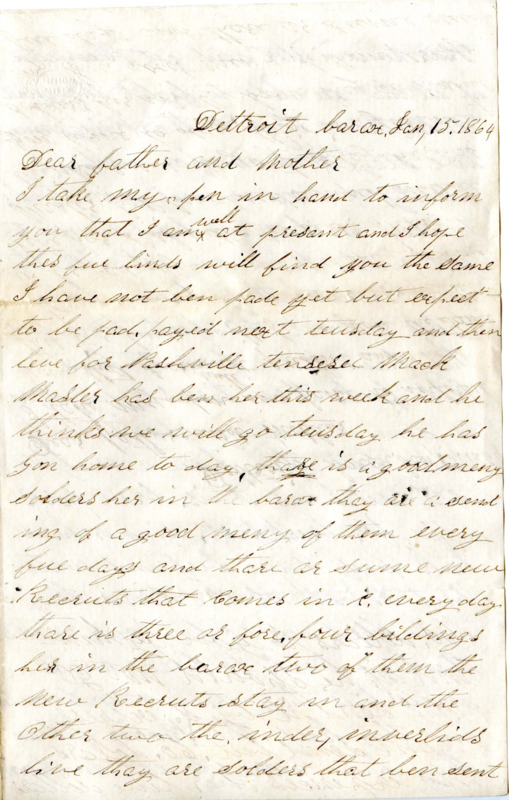 Dettroit barax, Jan, 15. 1864
Dear father and Mother
I take my pen in hand to inform
you that I am well at presant and I hope
thes fue linds will find you the same
I have not ben pade yet but expect
to be pad, payed next teusday and then
leve for Nashville tenesee Mack
Masler has ben her this week and he
thinks we will go teusday he has
gon home to day, thare is a good meny
solders her in the barax they are a send
ing of a good meny of them every
fue days and thare ar sume new
Recruts that Comes in every day
thare is three or fore, four bildings
her in the barax two of them the
new Recruts stay in and the
Other two the, inder, inverlids
live thay are solders that ben sent